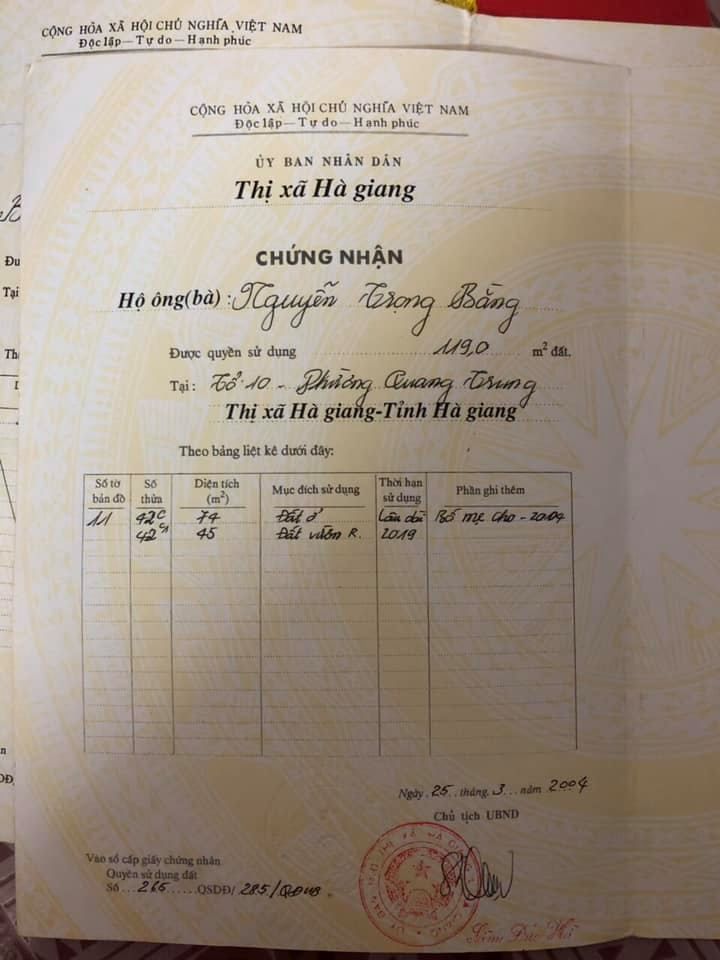 CỘNG HÒA XÃ HỘI CHỦ NGHĨA VIỆT NAM
Độc lập — Tự do — Hạnh phúc
CỘNG HÒA XÃ HỘI CHỦ NGHĨA VIỆT NAM
Độc lập — Tự do — Hạnh phúc
ỦY BAN NHÂN DÂN
Thị xã Hà giang
CHỨNG NHẬN
Hộ ông(bà) : Nguyễn Trọng Bằng
Được quyền sử dụng 119,0 m² đất.
Tại : Tổ 10 - Phường Quang Trung
Thị xã Hà giang-Tỉnh Hà giang
Theo bảng liệt kê dưới đây:
Số tờ bản đồ Số thửa Diện tích (m²) Mục đích sử dụng Thời hạn sử dụng Phần ghi thêm
11 42C 74 Đất ở Lâu dài Bố mẹ cho - 2004
42 45 Đất vườn R. 2019
Ngày 25 tháng 3 năm 2004
Chủ tịch UBND
Vào sổ cấp giấy chứng nhận
Quyền sử dụng đất
Số 265 QSDĐ/ 285/QĐUB
Sầm Đức Hà